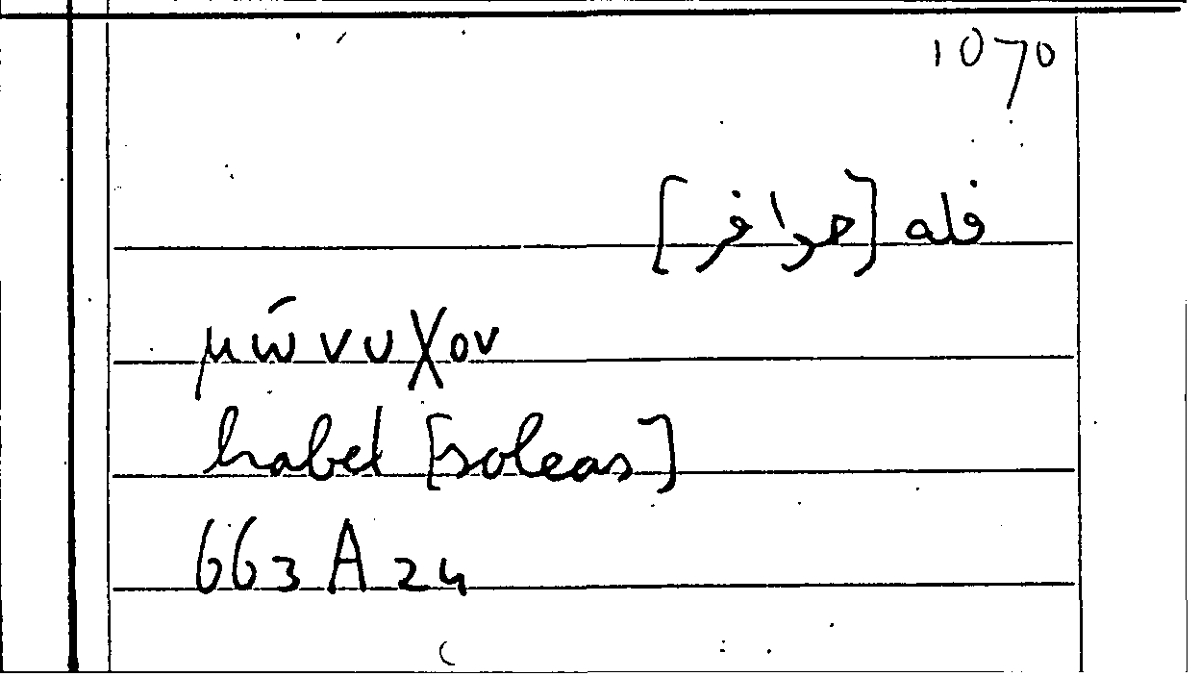 1070
فله [حوافر]
μώνυχον
habet [soleas]
663 A 24